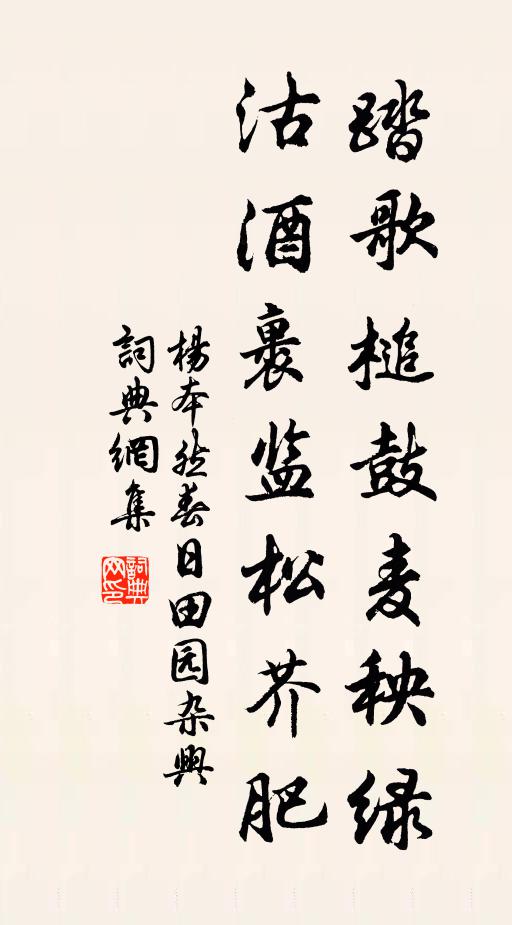 踏歌槌鼓麦秧绿
沽酒裹监松芥肥
楊本然春日田园杂興
詞典網集
詞典网印